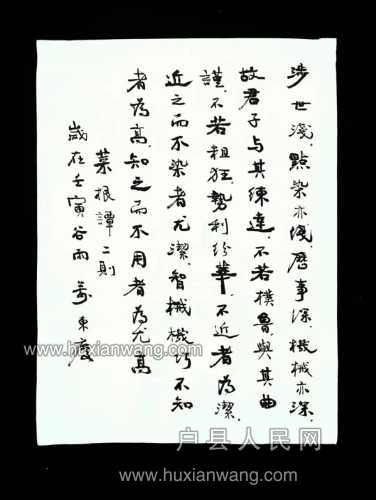 涉世淺，點染亦淺，歷事深，機械亦深，
故君子与其練達，不若樸魯，與其曲
謹，不若粗狂，勢利紛華，不近者為潔，
近之而不染者尤潔，智械機巧不知
者為高，知之而不用者為尤高
菜根譚二則
歲在壬寅谷雨 東慶
www.huxianwang.com
www.huxianwang.com
户县人民网
www.huxianwang.com